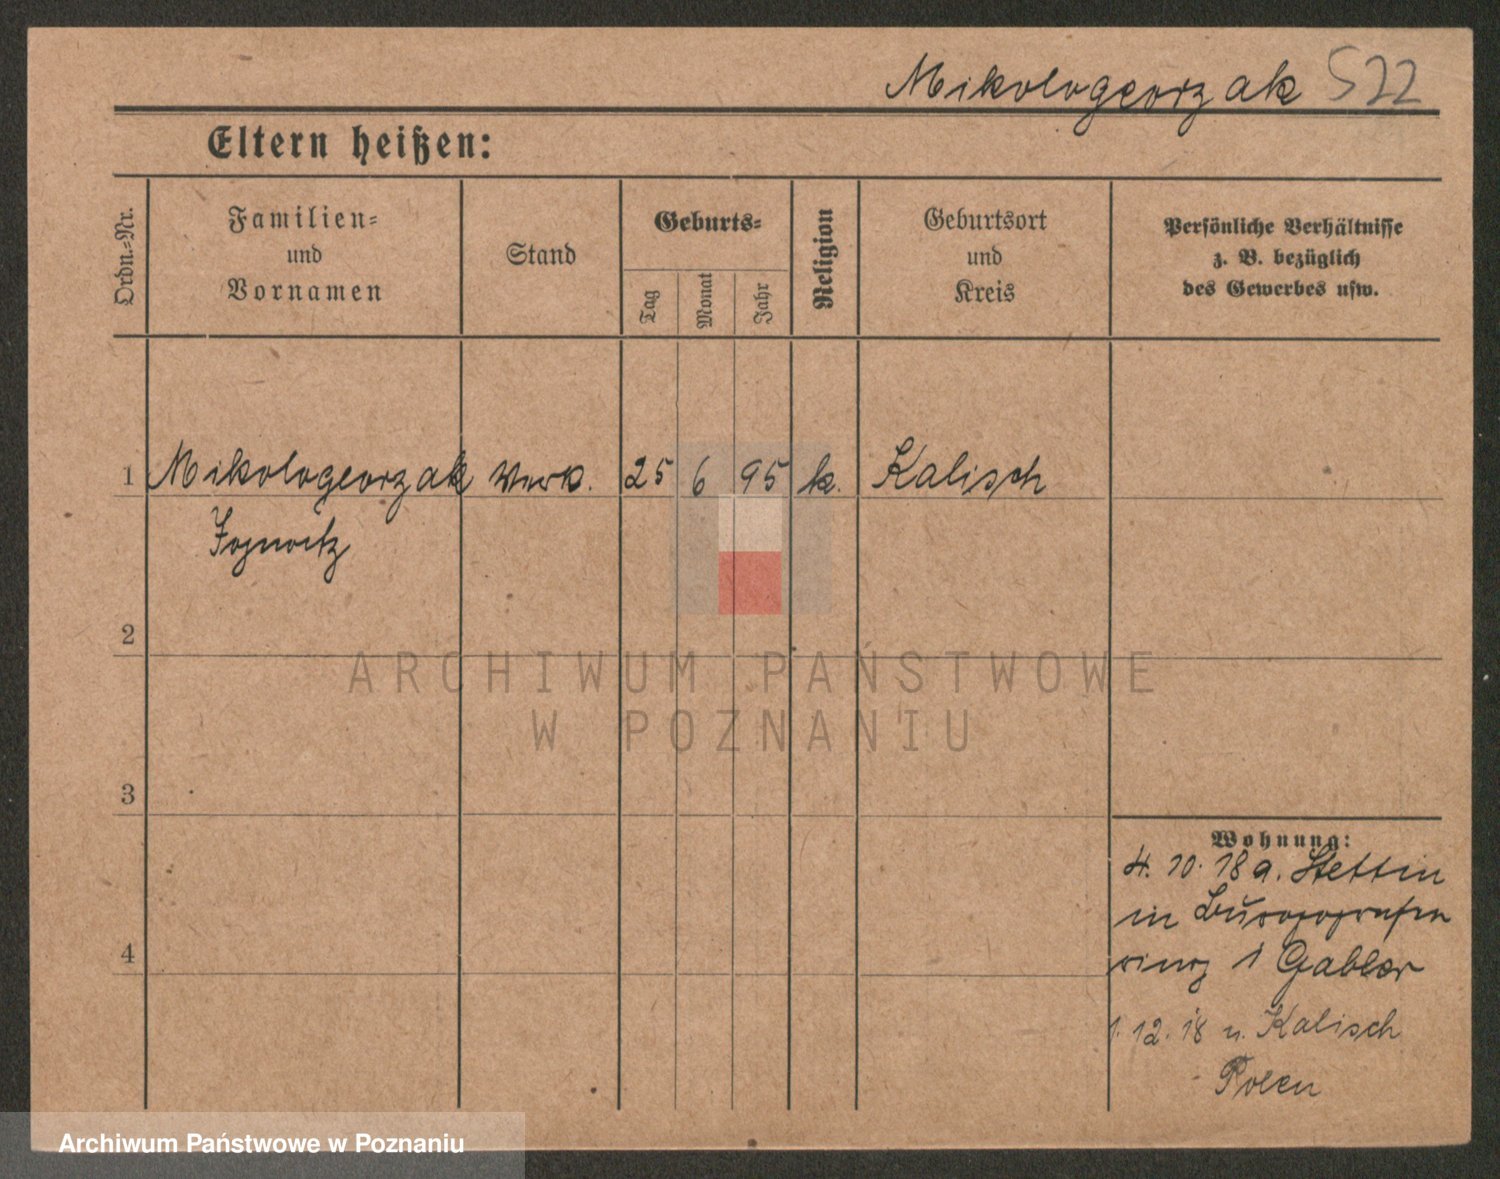 Mikologeorzak 522
Eltern heißen:
Ordn.=Nr.
Familien=
und
Vornamen
Stand
Geburts=
Tag
Monat
Jahr
Religion
Geburtsort
und
Kreis
Persönliche Verhältnisse
z. B. bezüglich
des Gewerbes usw.
1 Mikologeorzak 25 6 95 k. Kalisch
2
3
4
Wohnung:
4. 10. 18 a. Stettin
in
1 Gabler
1. 12. 18 n. Kalisch
Polen
ARCHIWUM PAŃSTWOWE
W POZNANIU
Archiwum Państwowe w Poznaniu